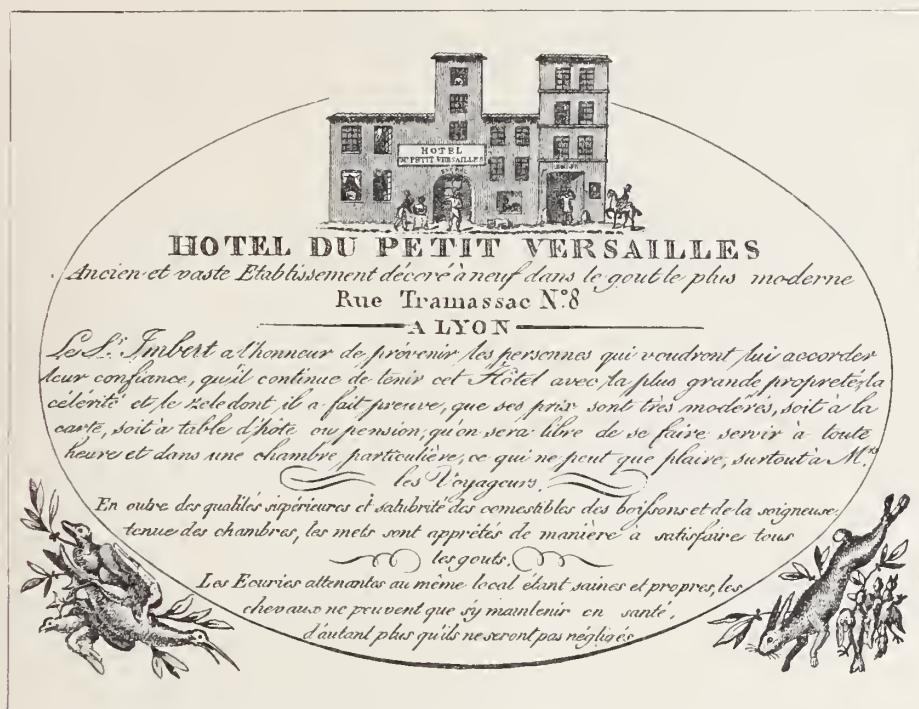 HOTEL
DU PETIT VERSAILLES
HOTEL DU PETIT VERSAILLES
Ancien et vaste Etablissement décoré à neuf dans le gout le plus moderne
Rue Tramassac N.º 8
A LYON
Le S.r Imbert a l'honneur de prévenir les personnes qui voudront lui accorder
leur confiance, qu'il continue de tenir cet Hôtel avec la plus grande propreté, la
célérité et le zele dont il a fait preuve, que ses prix sont très modérés, soit à la
carte, soit à table d'hôte ou pension, qu'on sera libre de se faire servir à toute
heure et dans une chambre particulière, ce qui ne peut que plaire, surtout à M.rs
les Voyageurs.
En outre des qualités supérieures et salubrité des comestibles des boissons et de la soigneuse
tenue des chambres, les mets sont apprétés de manière à satisfaire tous
les gouts.
Les Ecuries attenantes au même local étant saines et propres, les
chevaux ne peuvent que s'y maintenir en santé,
d'autant plus qu'ils ne seront pas négligés